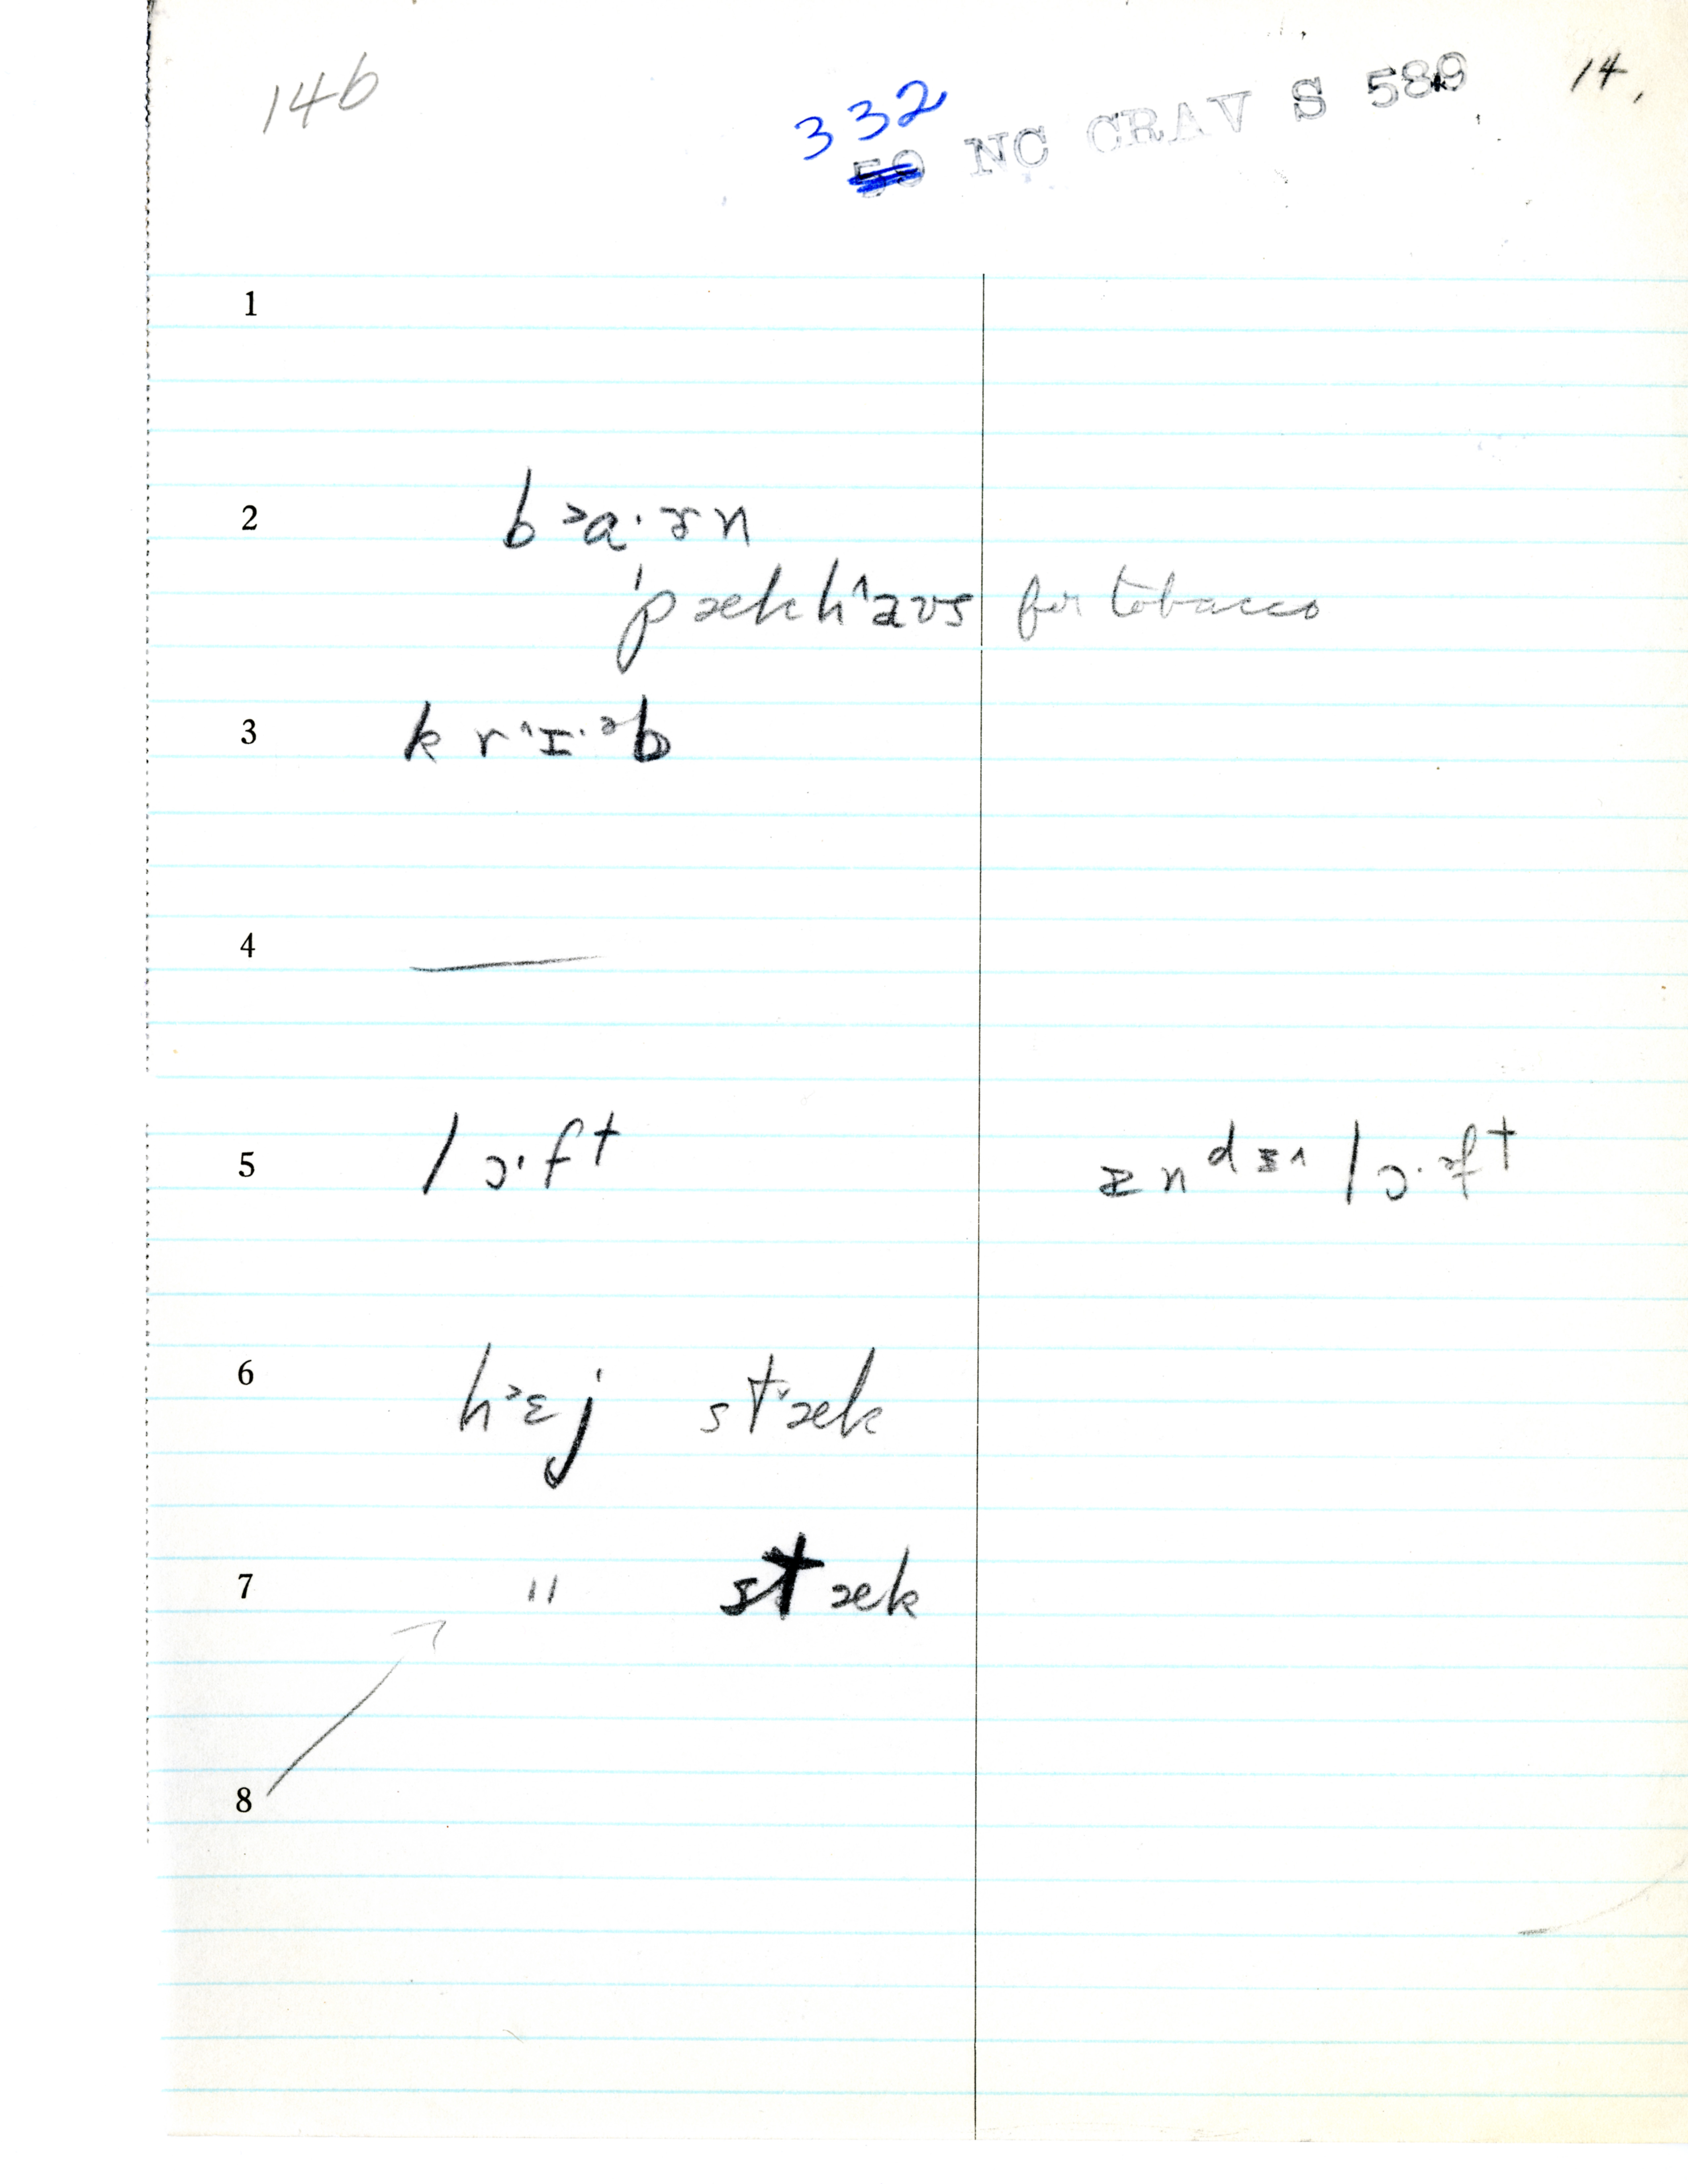 14b
332
50 NC CRAV S 589 14.
1
2 b˃ɑ·ɚn
ˈpækh˄aʊs for tobacco
3 kr˄ɪ·ᵊb
4 —
5 lɔ·ft ɪnᵈɪ˄ lɔ·ᵊft
6 h˃ɛj st˅æk
7 " stæk
8